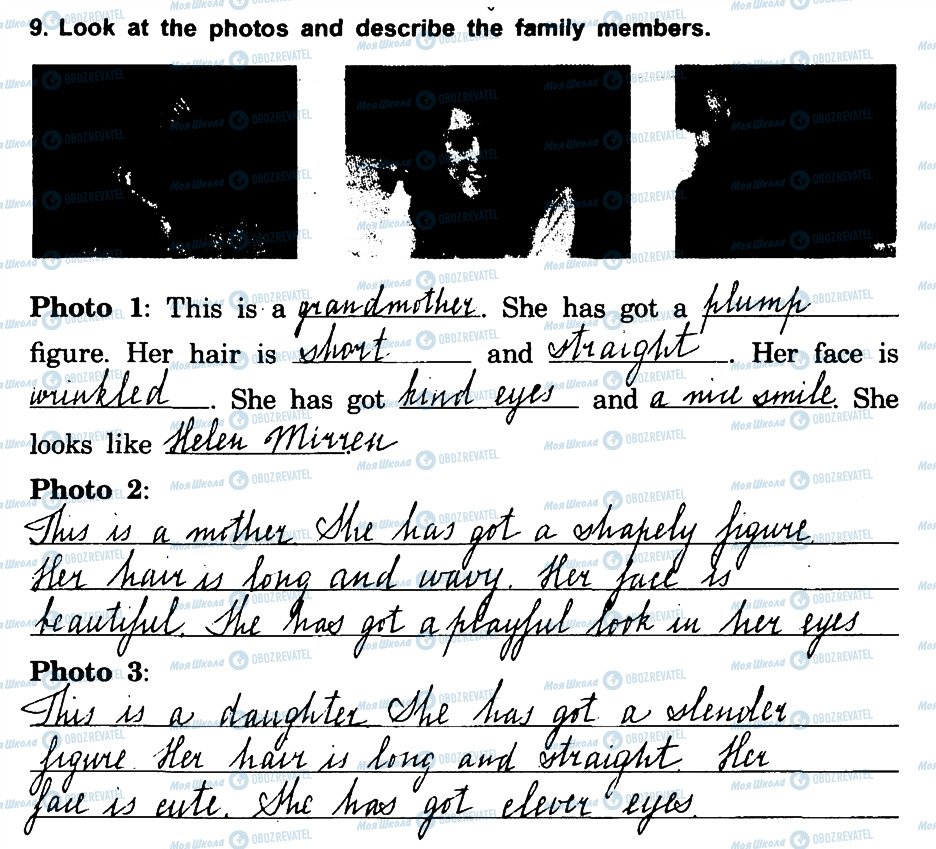 9. Look at the photos and describe the family members.
Photo 1: This is a grandmother. She has got a plump
figure. Her hair is short and straight. Her face is
wrinkled. She has got kind eyes and a nice smile. She
looks like Helen Mirren
Photo 2:
This is a mother. She has got a shapely figure.
Her hair is long and wavy. Her face is
beautiful. She has got a playful look in her eyes
Photo 3:
This is a daughter. She has got a slender
figure. Her hair is long and straight. Her
face is cute. She has got clever eyes.
Моя Школа OBOZREVATEL